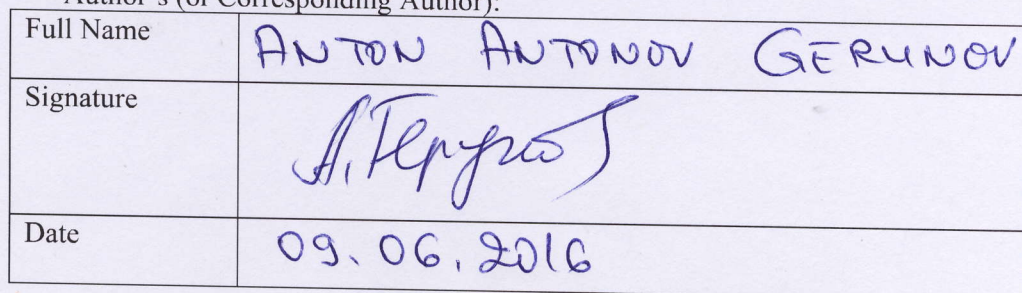 Author's (or Corresponding Author):
Full Name ANTON ANTONOV GERUNOV
Signature А.Герунов
Date 09.06.2016